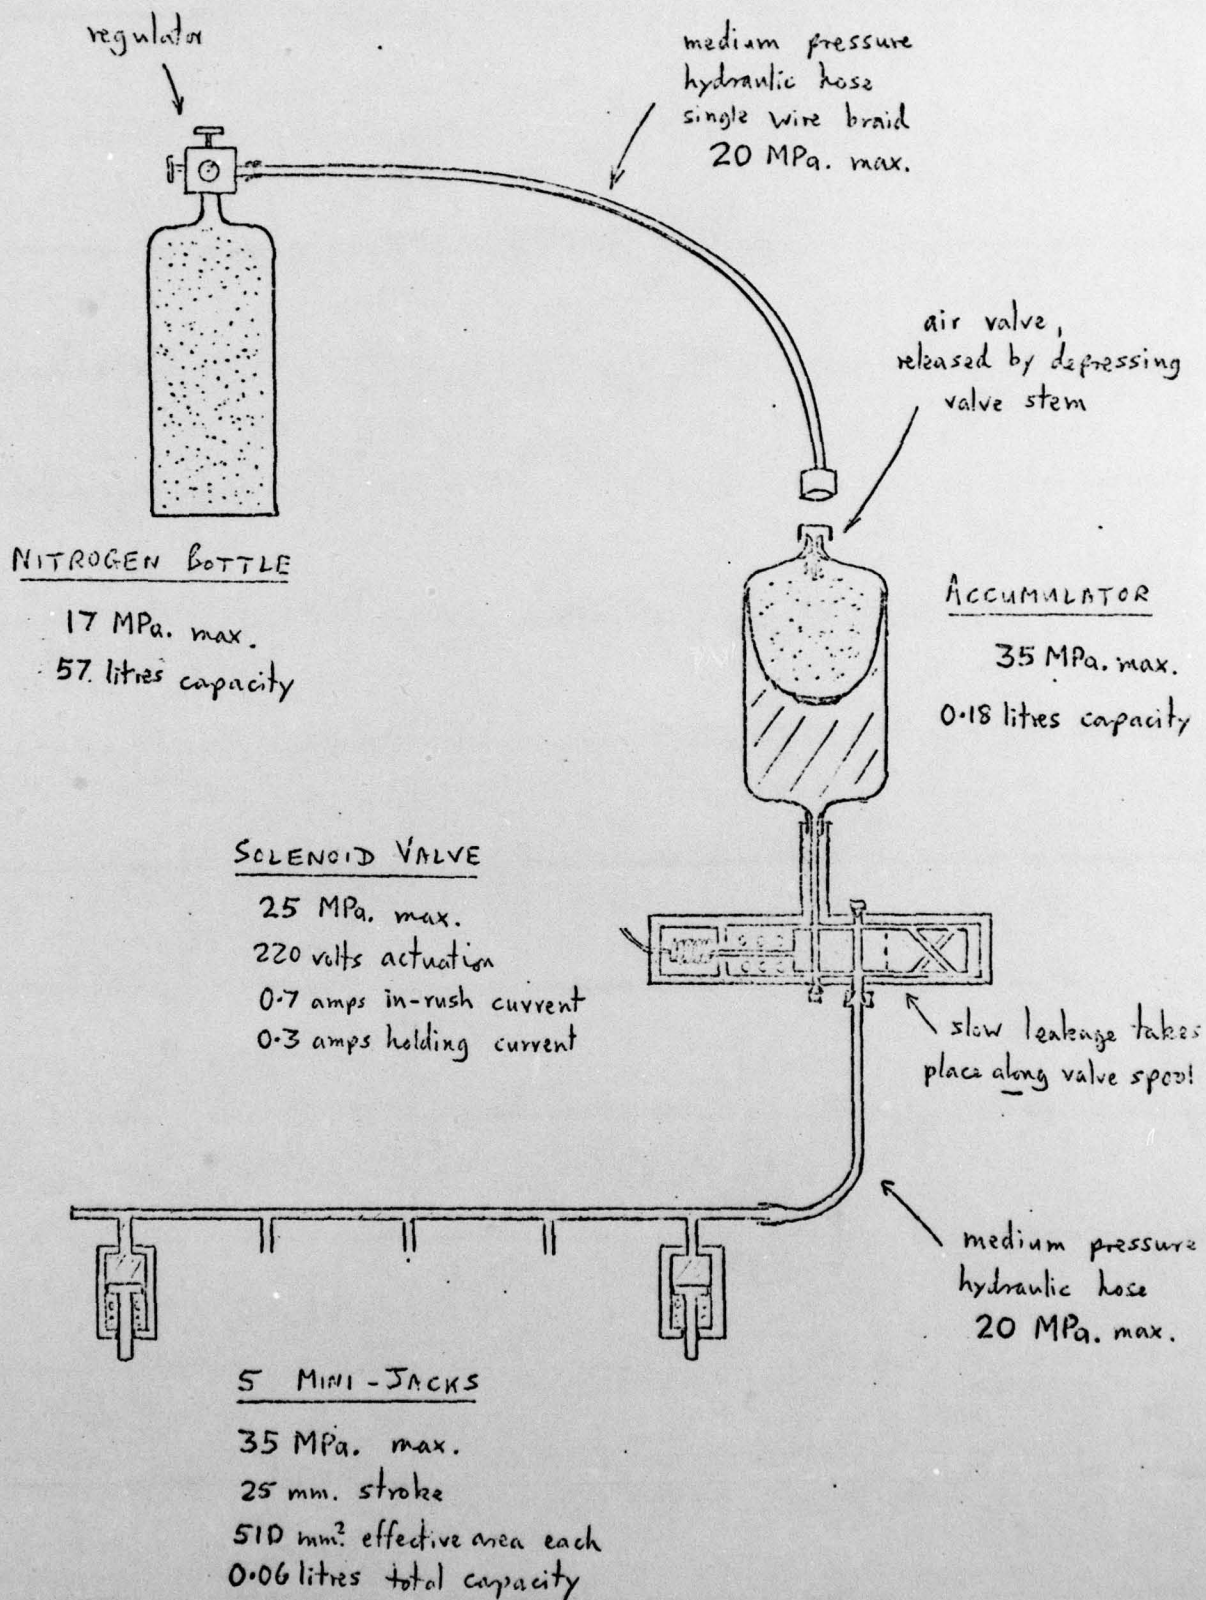 regulator
medium pressure
hydraulic hose
single wire braid
20 MPa. max.
air valve,
released by depressing
valve stem
NITROGEN BOTTLE
17 MPa. max.
57. litres capacity
ACCUMULATOR
35 MPa. max.
0.18 litres capacity
SOLENOID VALVE
25 MPa. max.
220 volts actuation
0.7 amps in-rush current
0.3 amps holding current
slow leakage takes
place along valve spool
medium pressure
hydraulic hose
20 MPa. max.
5 MINI-JACKS
35 MPa. max.
25 mm. stroke
510 mm² effective area each
0.06 litres total capacity